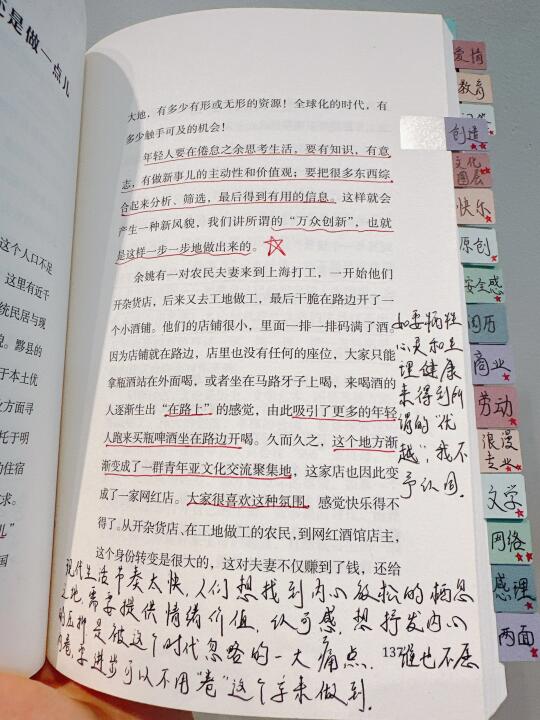 是做一点儿
这个人口不足
这里有近千
统民居与现
貌。黟县的
于本土优
业方面寻
托于明
的住宿
求。
国
大地，有多少有形或无形的资源！全球化的时代，有
多少触手可及的机会！
年轻人要在倦怠之余思考生活，要有知识，有意
志，有做新事儿的主动性和价值观；要把很多东西综
合起来分析、筛选，最后得到有用的信息。这样就会
产生一种新风貌，我们讲所谓的“万众创新”，也就
是这样一步一步地做出来的。
余姚有一对农民夫妻来到上海打工，一开始他们
开杂货店，后来又去工地做工，最后干脆在路边开了一
个小酒铺。他们的店铺很小，里面一排一排码满了酒。
因为店铺就在路边，店里也没有任何的座位，大家只能
拿瓶酒站在外面喝，或者坐在马路牙子上喝，来喝酒的
人逐渐生出“在路上”的感觉，由此吸引了更多的年轻
人跑来买瓶啤酒坐在路边开喝。久而久之，这个地方渐
渐变成了一群青年亚文化交流聚集地，这家店也因此变
成了一家网红店。大家很喜欢这种氛围，感觉快乐得不
得了。从开杂货店、在工地做工的农民，到网红酒馆店主，
这个身份转变是很大的，这对夫妻不仅赚到了钱，还给
137
如要牺牲
心灵和生
理健康
来得到所
谓的“优
越”，我不
予认同.
现代生活节奏太快，人们想找到内心放松的栖息
之地，需要提供情绪价值，认可感，想抒发内心
的压抑是被这个时代忽略的一大痛点. 谁也不愿
内卷，要进步可以不用“卷”这个字来做到.
爱情
教育
创造
文化
圈层
快乐
原创
安全感
阅历
商业
劳动
浪漫
专业
文学
网络
感理
两面